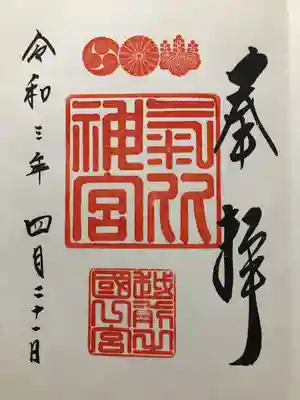 奉拝
氣比
神宮
越前之
國一宮
令和三年 四月二十一日